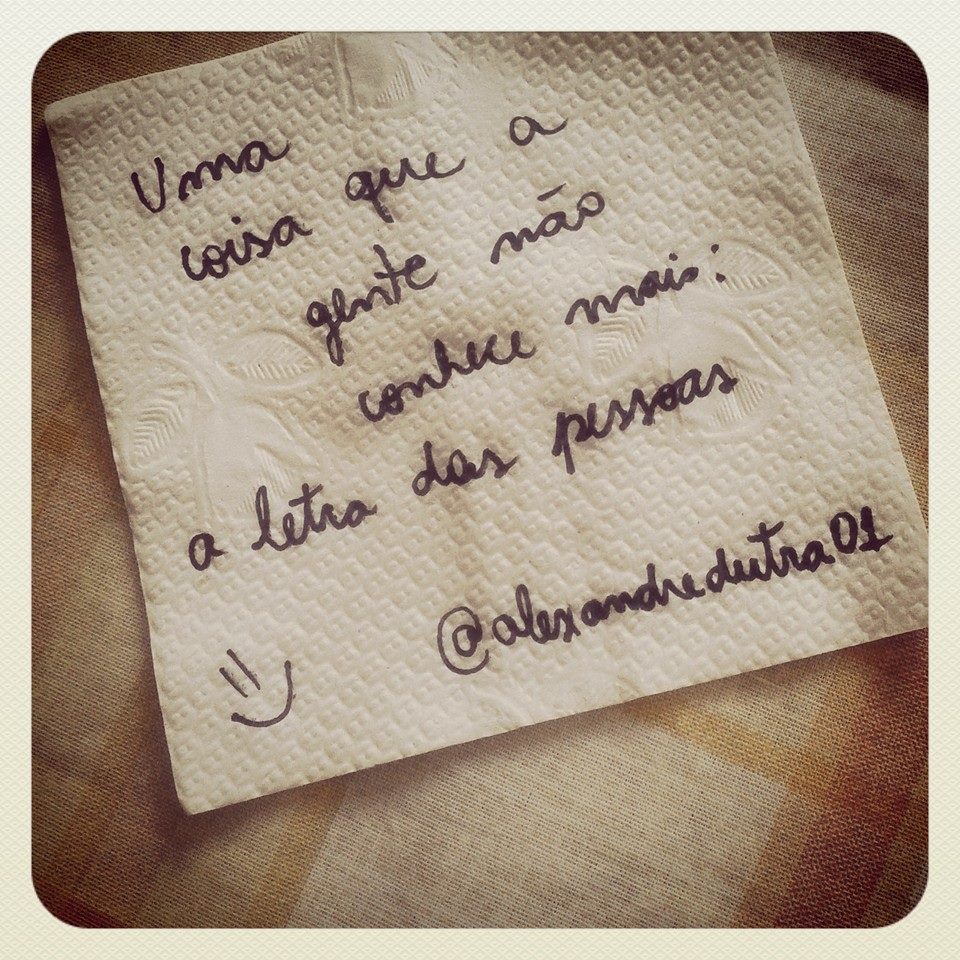 Uma
coisa que a
gente não
conhece mais:
a letra das pessoas
@alexandredutra01